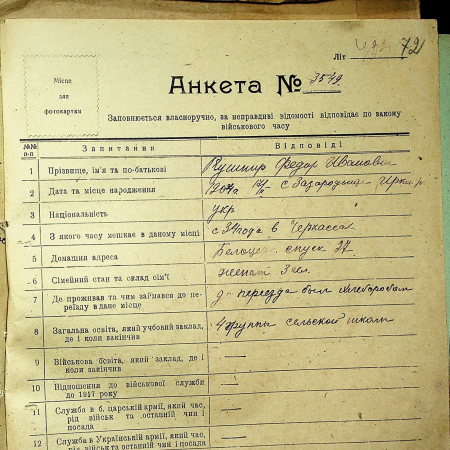 Літ 72
Місце
для
фотокартки
Анкета № 3549
Заповнюється власноручно, за неправдиві відомості відповідає по закону
військового часу
№№
п-п
Запитання
Відповіді
1 Прізвище, ім'я та по-батькові Кушнир Федор Иванович
2 Дата та місце народження 1904
3 Національність укр
4 З якого часу мешкає в даному місці с 34 года в Черкассах
5 Домашня адреса спуск 27
6 Сімейний стан та склад сім'ї женат 3 чел.
7 Де проживав та чим займався до пе-
реїзду в дане місце до переезда был хлеборобом
8 Загальна освіта, який учбовий заклад,
де і коли вакінчив 4 группы сельской школы
9 Військова освіта, який заклад, де і
коли вакінчив —
10 Відношення до військової служби
до 1917 року —
11 Служба в б. царській армії, який час,
рід військ та останній чин і
посада —
12 Служба в Українській армії, який час,
рід військ та останній чин і посада —